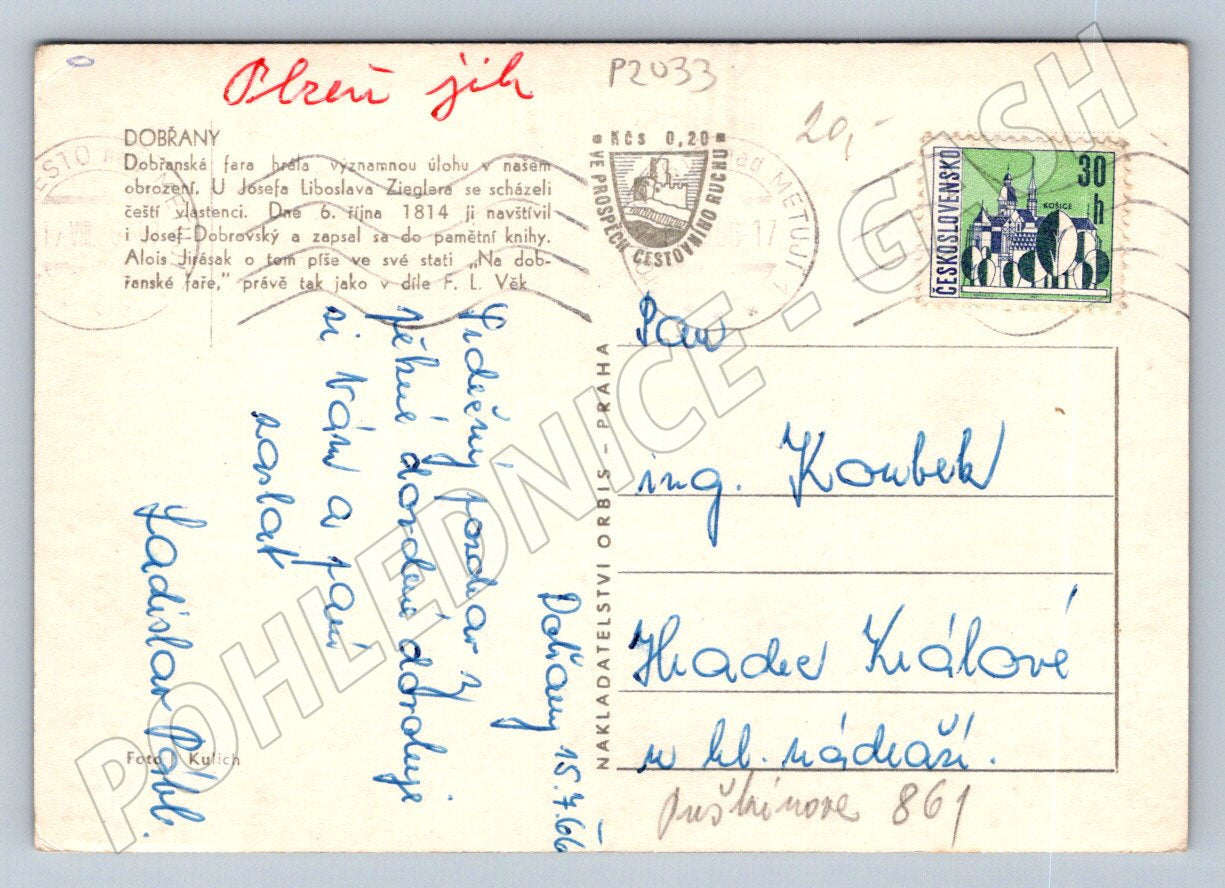 Plzeň jih
P2033
20,-
DOBŘANY
Dobřanská fara hrála významnou úlohu v našem
obrození. U Josefa Liboslava Zieglera se scházeli
čeští vlastenci. Dne 6. října 1814 ji navštívil
i Josef Dobrovský a zapsal se do pamětní knihy.
Alois Jirásek o tom píše ve své stati „Na dob-
řanské faře," právě tak jako v díle F. L. Věk
KČS 0,20
VE PROSPĚCH CESTOVNÍHO RUCHU
MĚSTO nad METUJÍ
17
ČESKOSLOVENSKO
30 h
KOŠICE
Srdečný pozdrav z
pěkné dovolené
si Vám a paní
zaslat
Ladislav
15.7.66
Foto J Kulich
NAKLADATELSTVÍ ORBIS – PRAHA
Pan
ing. Koubek
Hradec Králové
u hl. nádraží.
Puškinova 861
POHLEDNICE - GASH